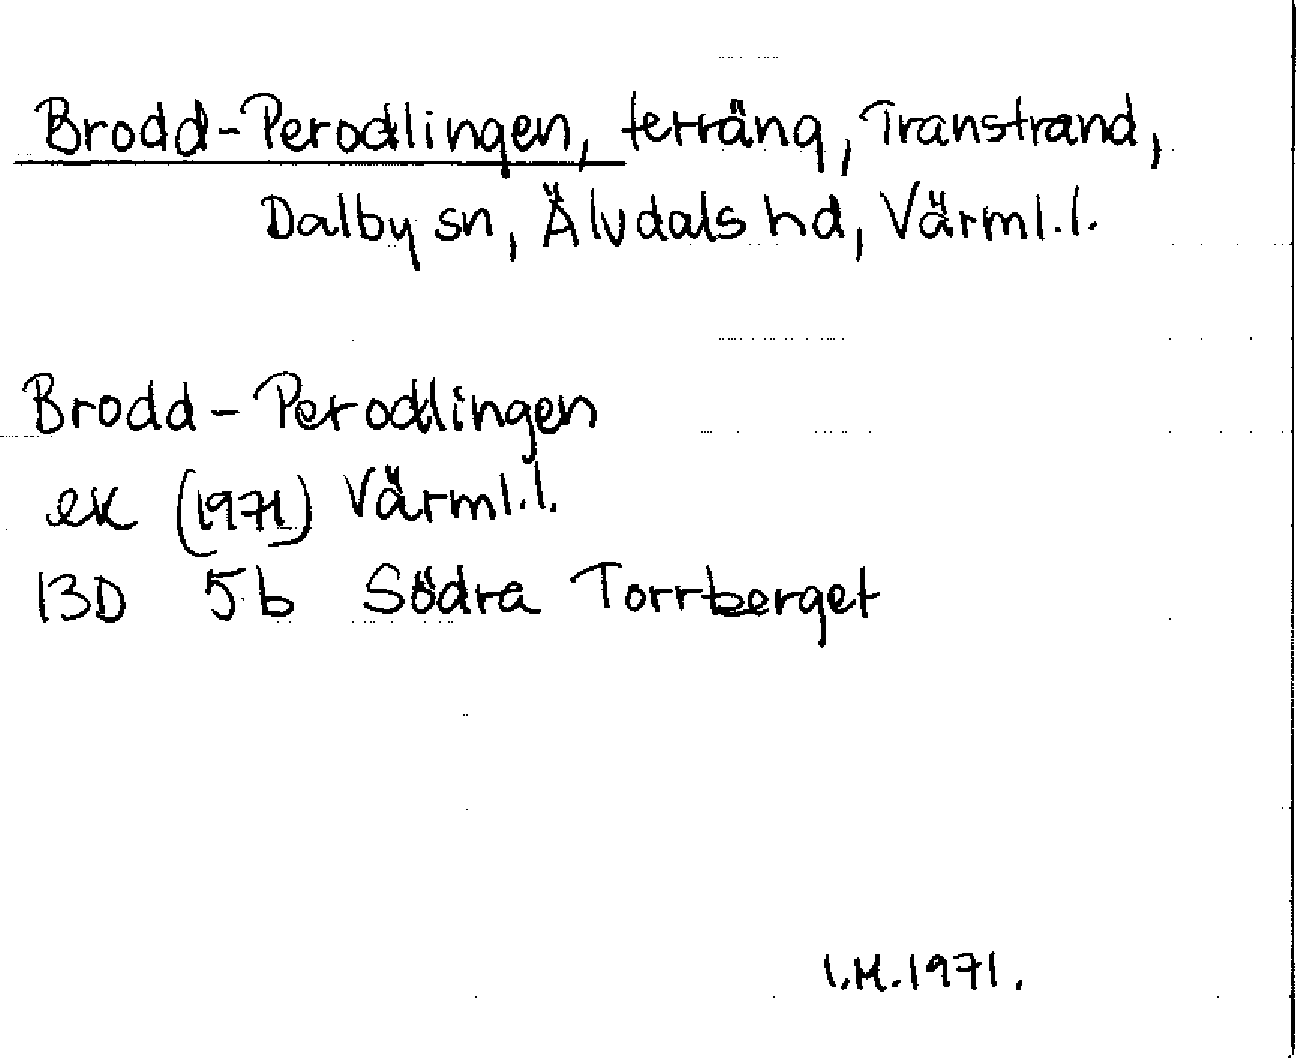 Brodd-Perodlingen, terräng, Transtrand,
Dalby sn, Älvdals hd, Värml. l.
Brodd-Perodlingen
ek (1971) Värml. l.
13D 5b Södra Torrberget
I.M. 1971.